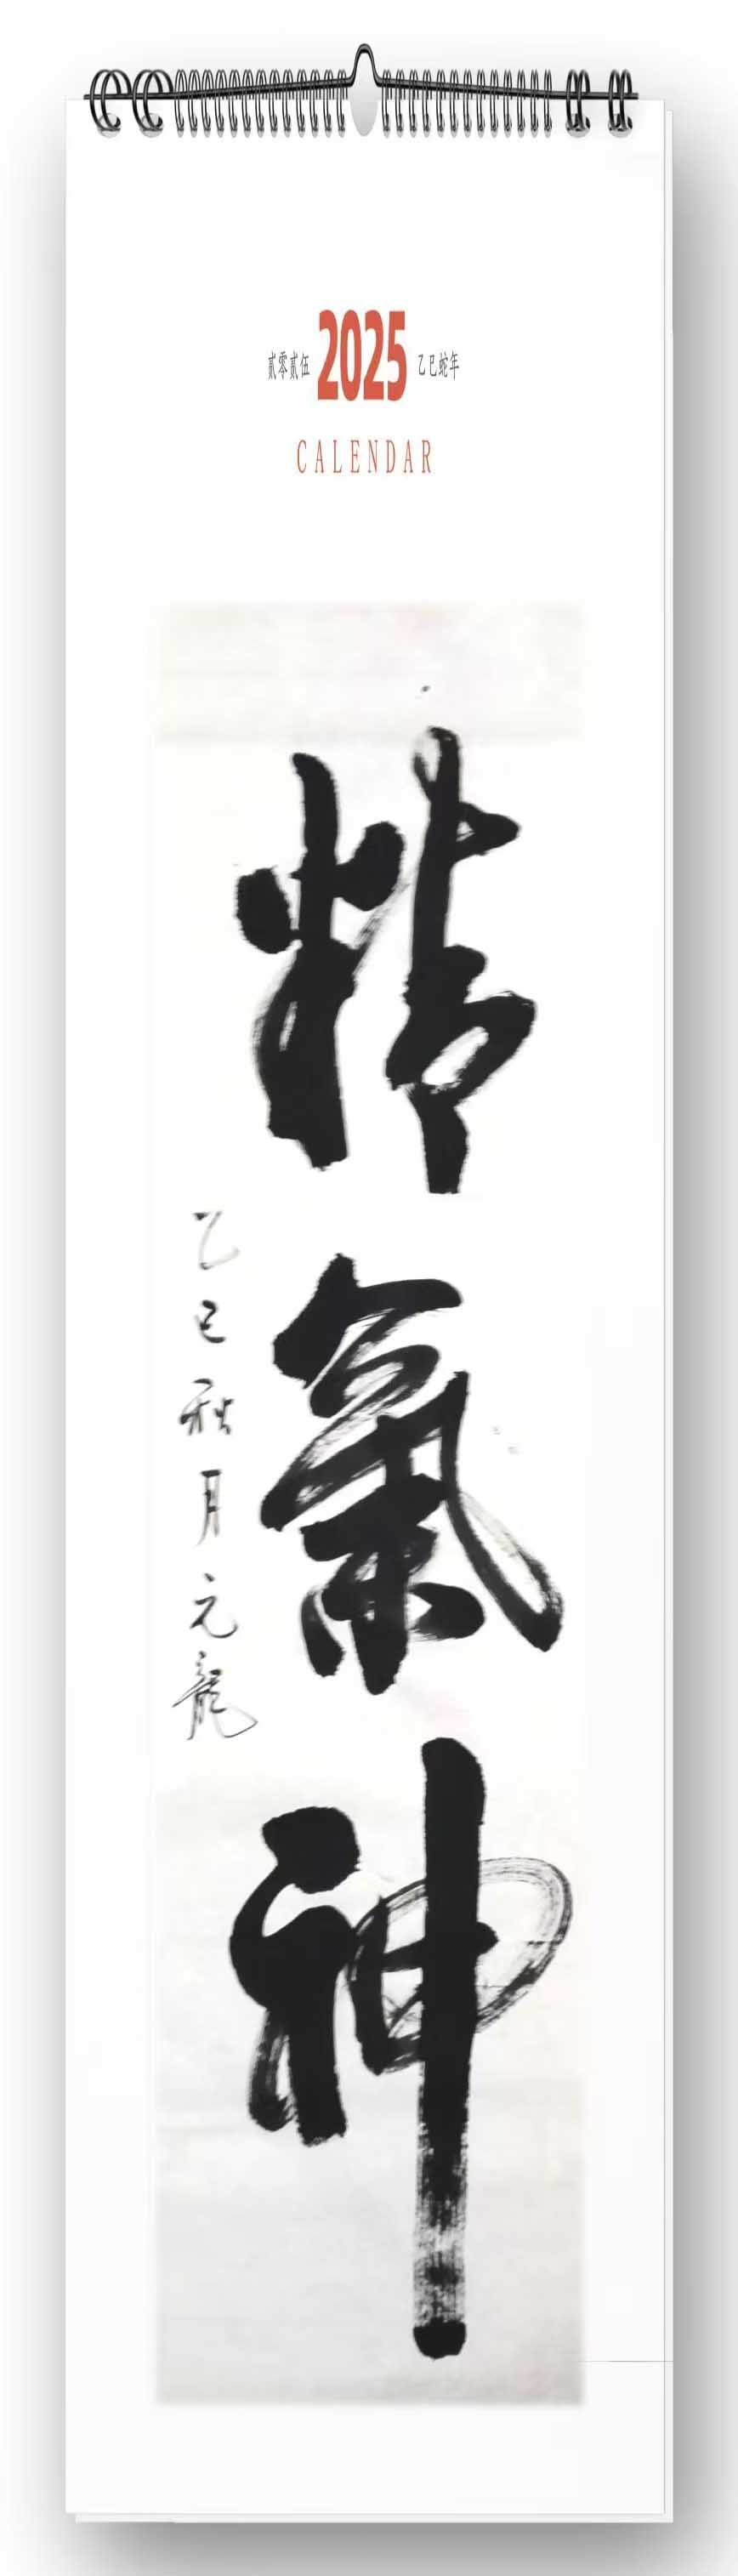 贰零贰伍 2025 乙巳蛇年
CALENDAR
精氣神
乙巳秋月元龍